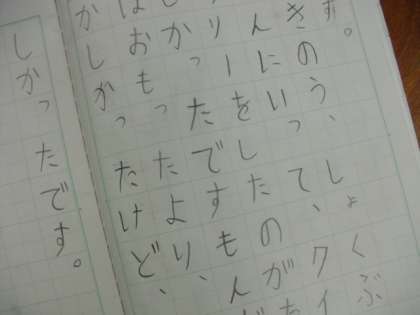 す。
きのう、しょくぶ
んにいって、クイ
りーをしたのが
かったです。もん
はおもったより、
かしかったけど、
しかったです。